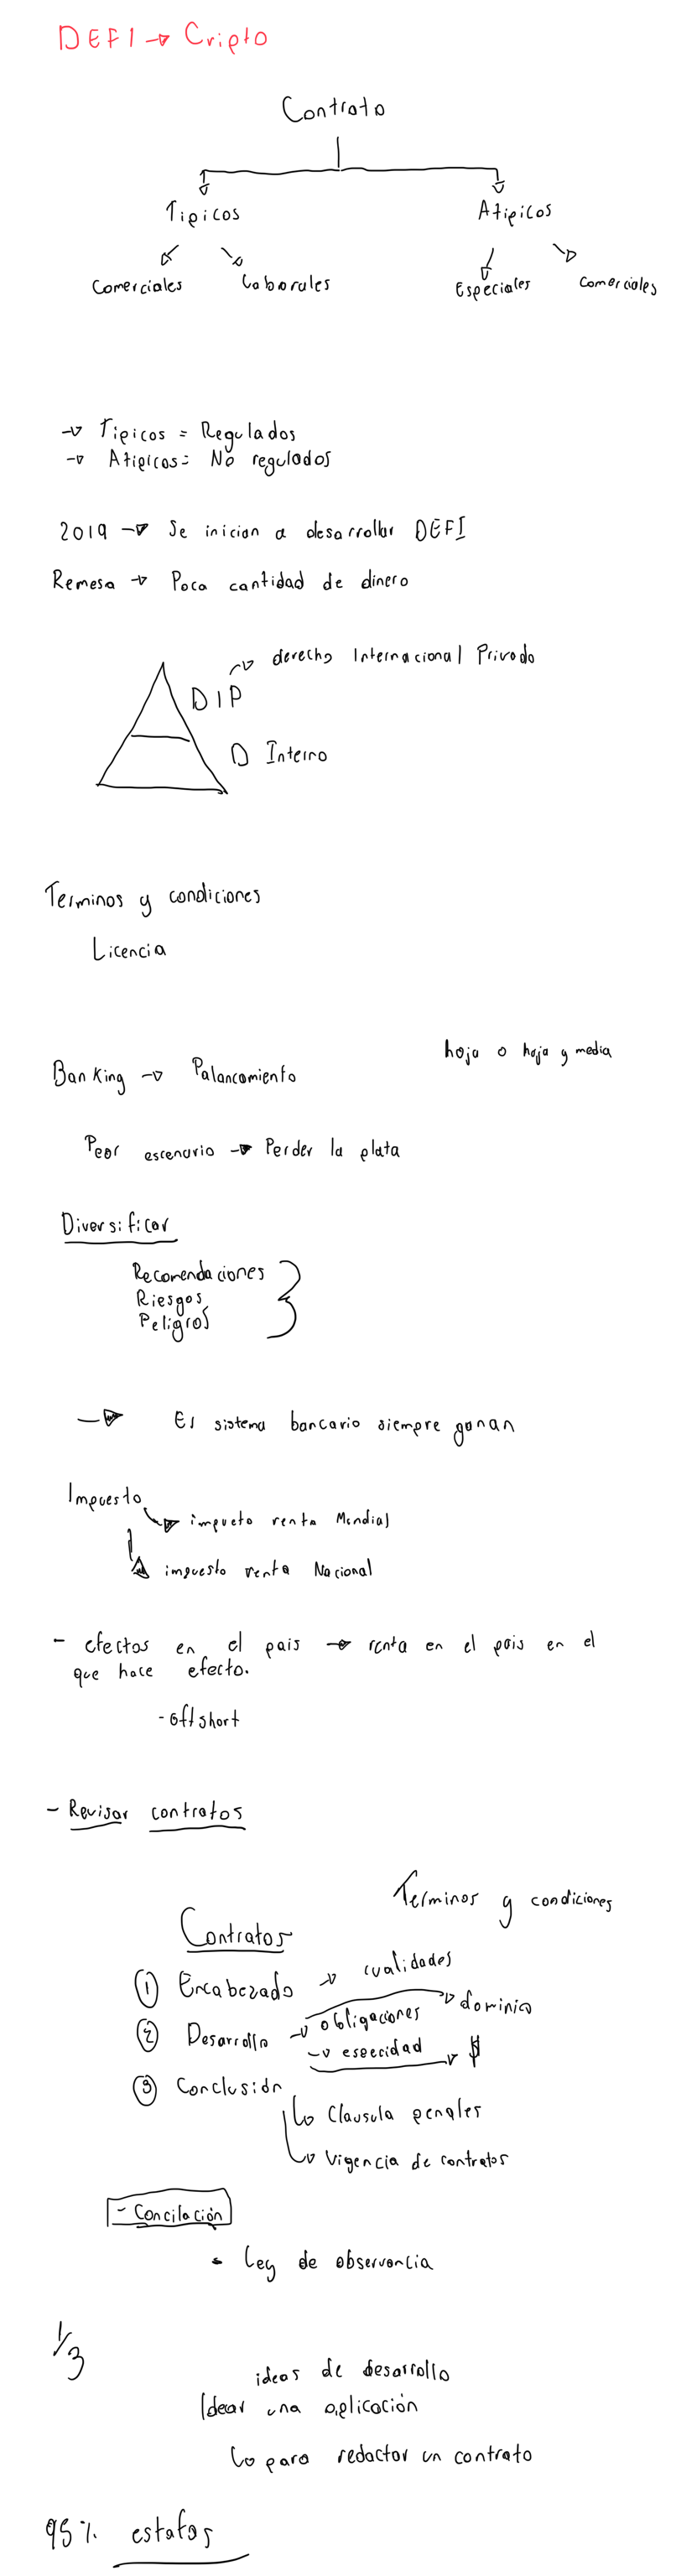 DEFI → Cripto
Contrato
Tipicos
Atipicos
Comerciales
Laborales
Especiales
Comerciales
→ Tipicos = Regulados
→ Atipicos = No regulados
2019 → Se inician a desarrollar DEFI
Remesa → Poca cantidad de dinero
→ derecho Internacional Privado
DIP
D Interno
Terminos y condiciones
Licencia
hoja o hoja y media
Banking → Palancamiento
Peor escenario → Perder la plata
Diversificar
Recomendaciones
Riesgos
Peligros
→ El sistema bancario siempre ganan
Impuesto
→ impueto renta Mundial
impuesto renta Nacional
- efectos en el pais → renta en el pais en el
que hace efecto.
- offshort
- Revisar contratos
Terminos y condiciones
Contratos
① Encabezado → cualidades
② Desarrollo → obligaciones → dominio
→ especidad → $
③ Conclusión
↳ Clausula penales
↳ Vigencia de contratos
- Concilación
• Ley de observancia
1/3
ideas de desarrollo
Idear una aplicación
↳ para redactar un contrato
95% estafas